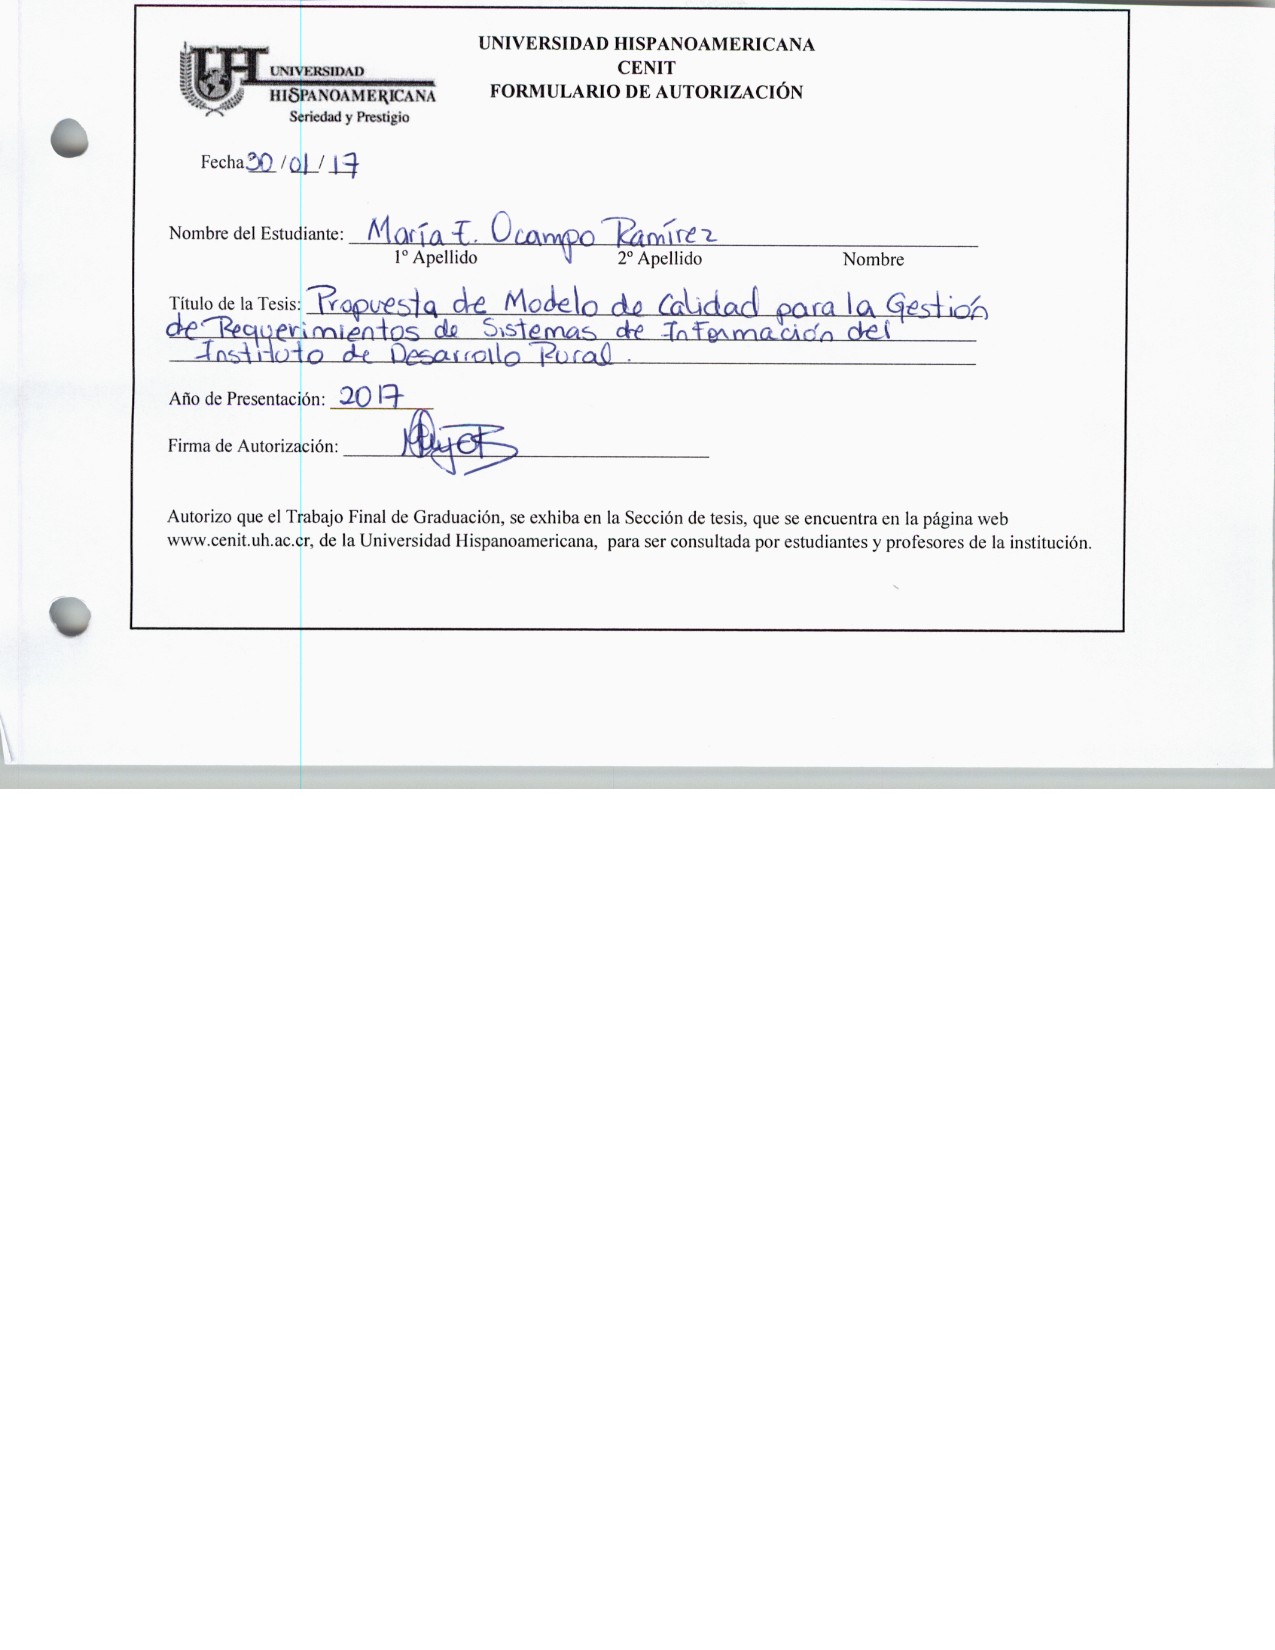 UNIVERSIDAD HISPANOAMERICANA
CENIT
FORMULARIO DE AUTORIZACIÓN
UH
UNIVERSIDAD
HISPANOAMERICANA
Seriedad y Prestigio
Fecha 30 / 01 / 17
Nombre del Estudiante: María E. Ocampo Ramírez
1º Apellido 2º Apellido Nombre
Título de la Tesis: Propuesta de Modelo de Calidad para la Gestión
de Requerimientos de Sistemas de Información del
Instituto de Desarrollo Rural.
Año de Presentación: 2017
Firma de Autorización:
Autorizo que el Trabajo Final de Graduación, se exhiba en la Sección de tesis, que se encuentra en la página web
www.cenit.uh.ac.cr, de la Universidad Hispanoamericana, para ser consultada por estudiantes y profesores de la institución.